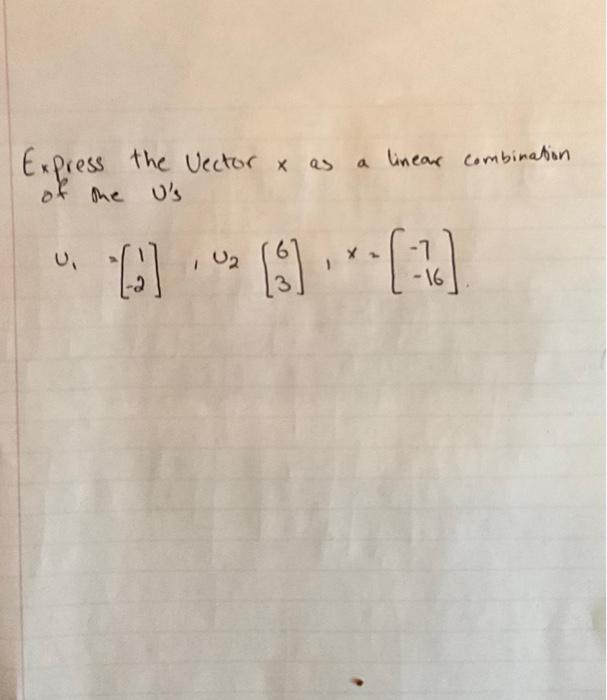 Express the Vector x as a linear combination
of the U's
U₁ = [1 -2], U₂ [6 3], x = [-7 -16].